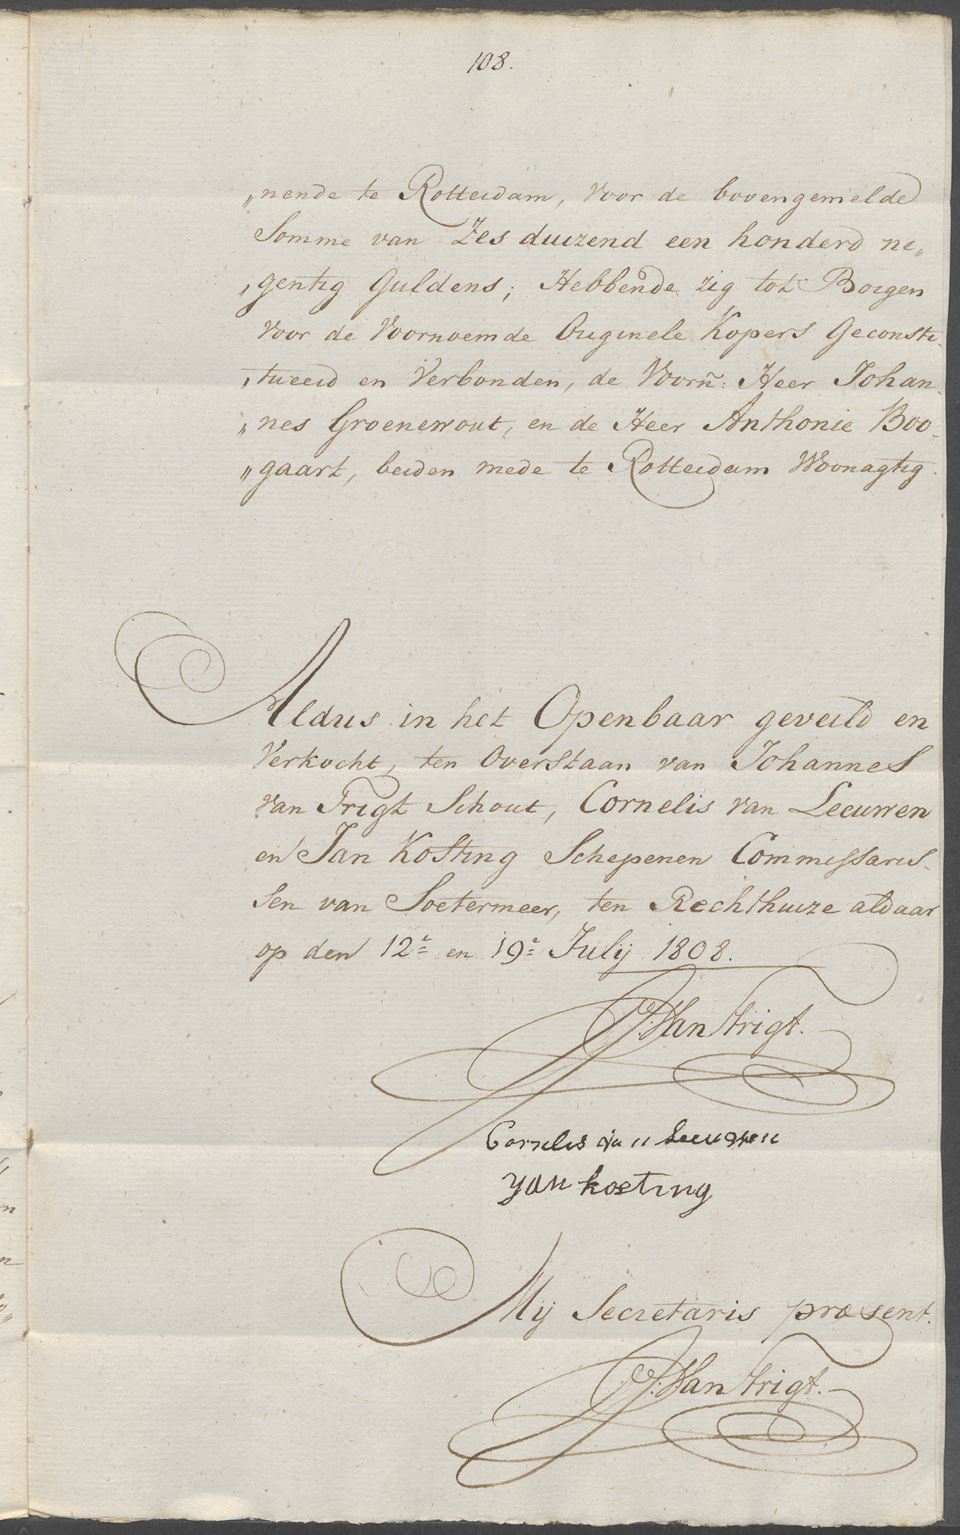 108.
„nende te Rotterdam, voor de bovengemelde
Somme van Zes duizend een honderd ne„
„gentig Guldens; Hebbende zig tot Borgen
voor de Voornoemde Originele Kopers Geconsti„
„tueerd en Verbonden, de Voorñ: Heer Johan„
„nes Groenewout, en de Heer Anthonie Boo„
„gaart, beiden mede te Rotterdam Woonagtig.
Aldus in het Openbaar geveild en
Verkocht, ten Overstaan van Johannes
van Trigt Schout, Cornelis van Leeuwen
en Jan Kosting Schepenen Commissaris„
sen van Soetermeer, ten Rechthuize aldaar
op den 12e en 19e Julij 1808.
J: Van Trigt.
Cornelis van Leeuwen
Jan kosting
Mij Secretaris præsent.
J: Van Trigt.